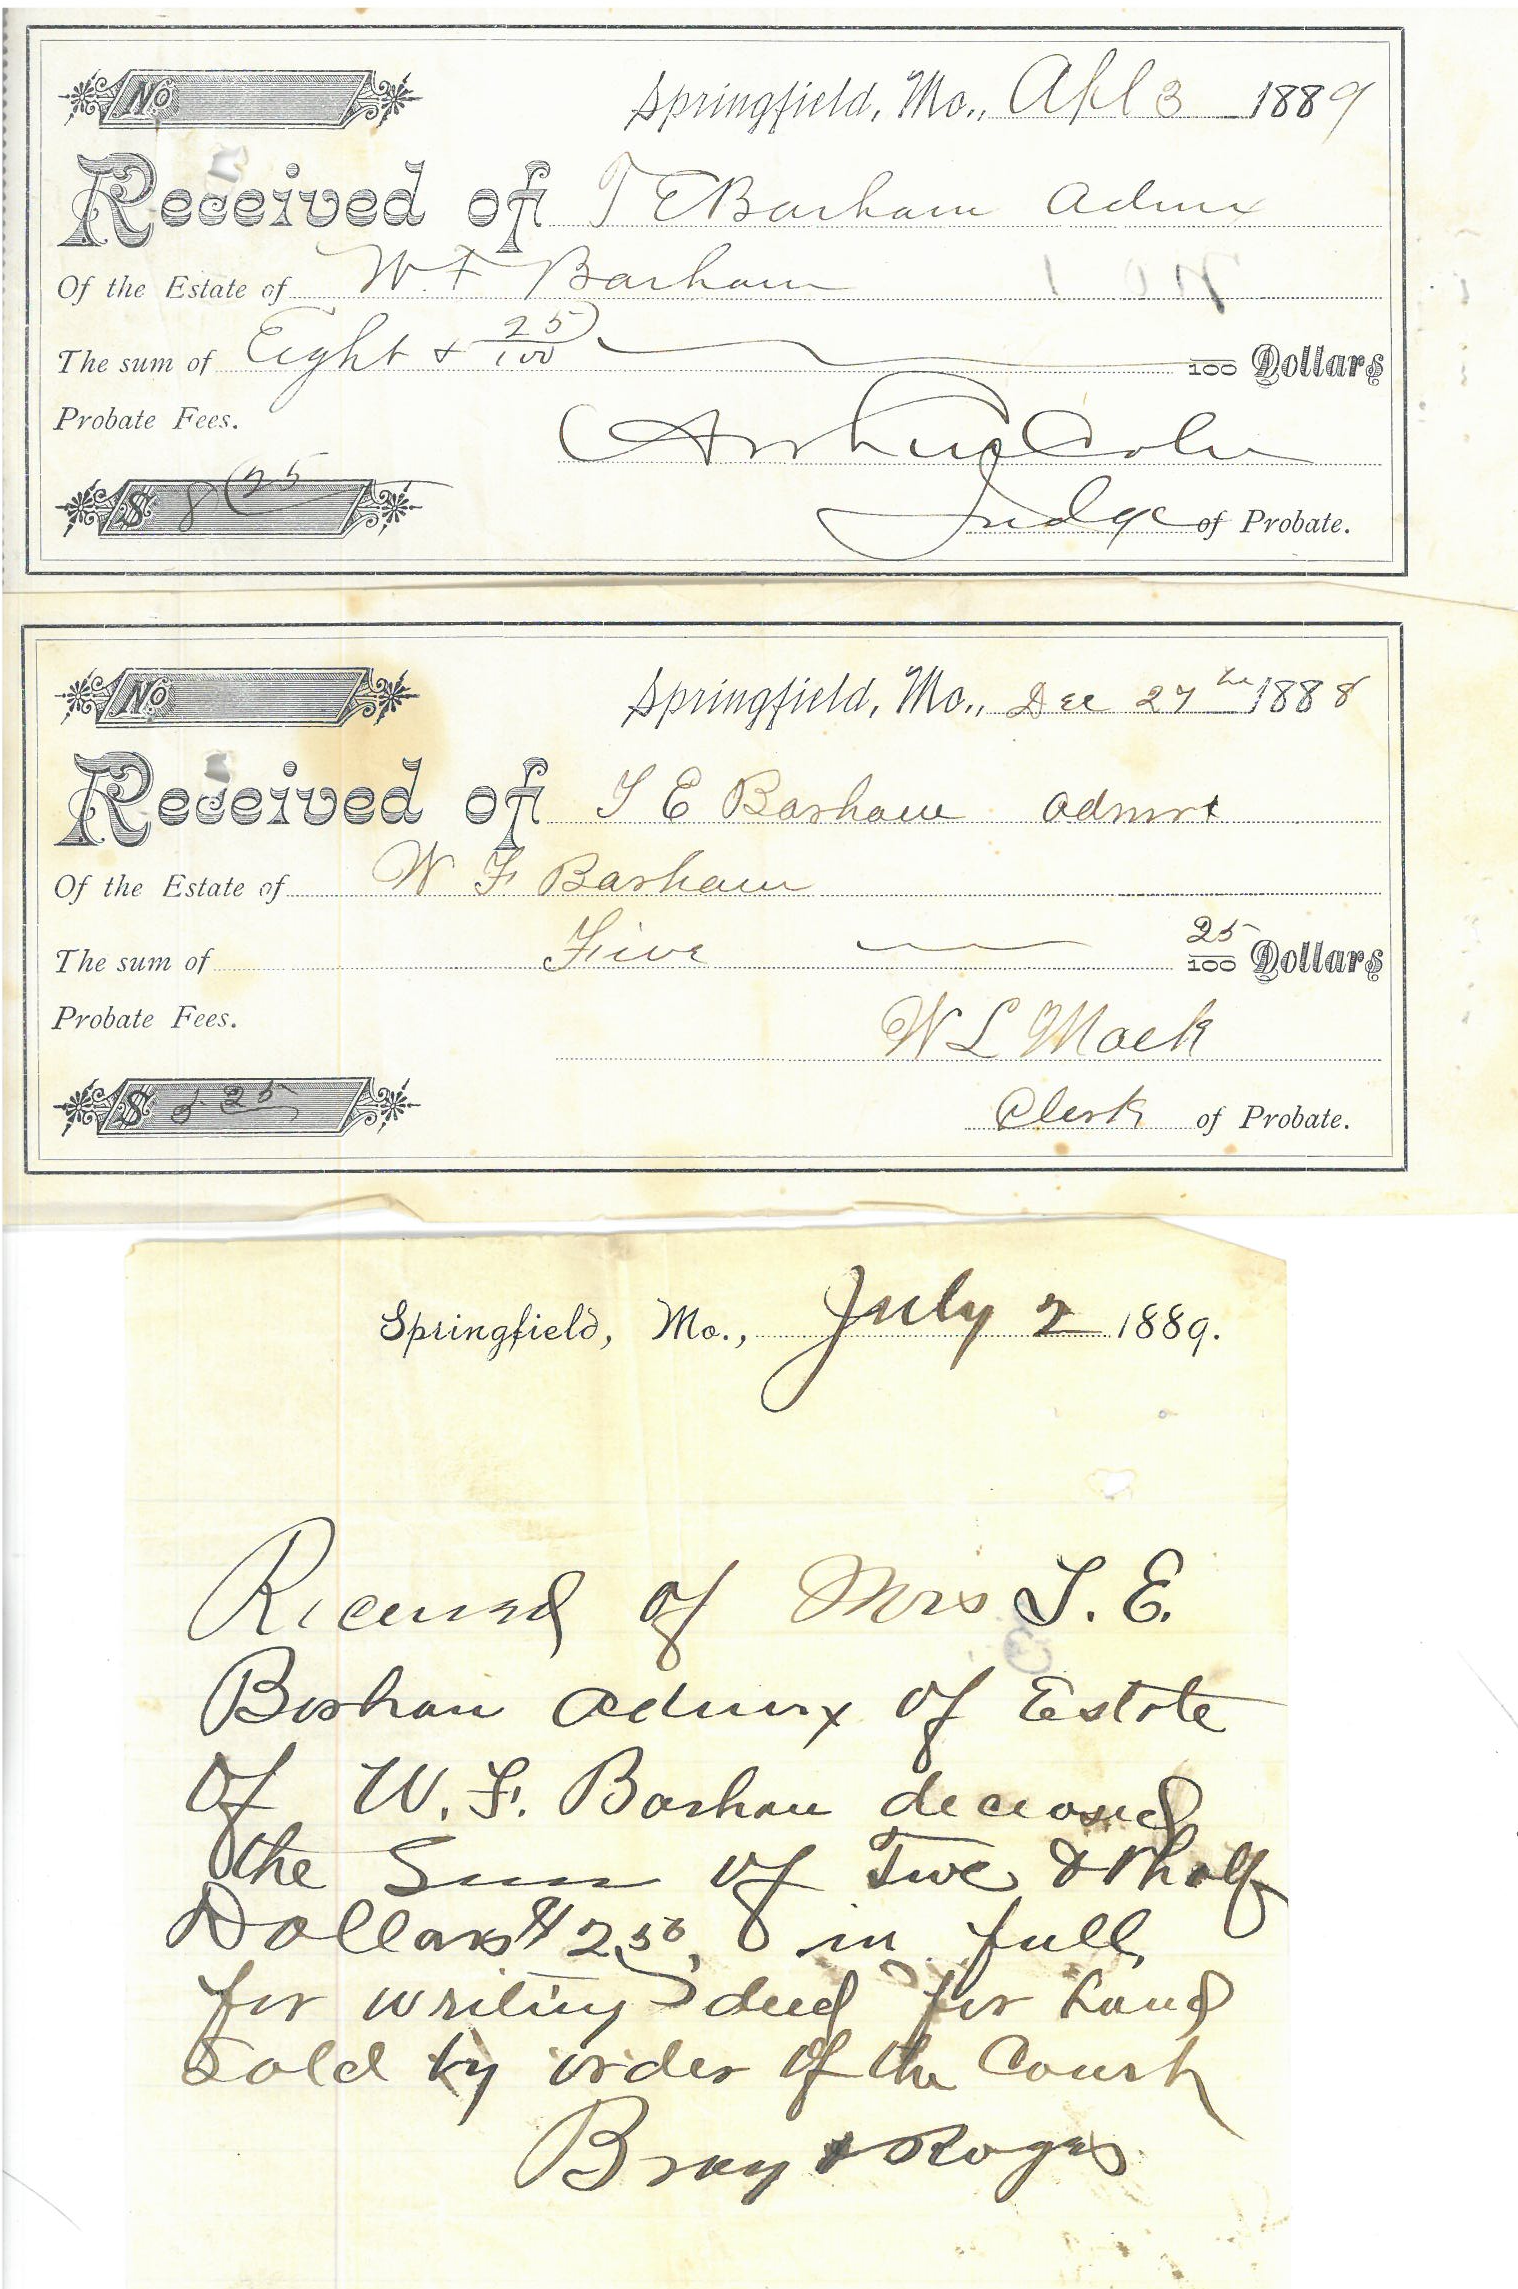 No
Springfield, Mo., Apl 3 1889
Received of T E Barham Admx
Of the Estate of W. F Barham
The sum of Eight + 25/100 /100 Dollars
Probate Fees.
$ 8 25
Judge of Probate.
No
Springfield, Mo., Dec 27th 1888
Received of T E Barham admrx
Of the Estate of W F Barham
The sum of Five 25/100 Dollars
Probate Fees.
W L Mack
$ 5 25
Clerk of Probate.
Springfield, Mo., July 2 1889.
Received of Mrs T. E.
Barham Admrx of Estate
of W. F. Barham deceased
the Sum of Two & 1 half
Dollars $2.50, in full
for writing deed for land
Sold by order of the Court
Bray & Rogers